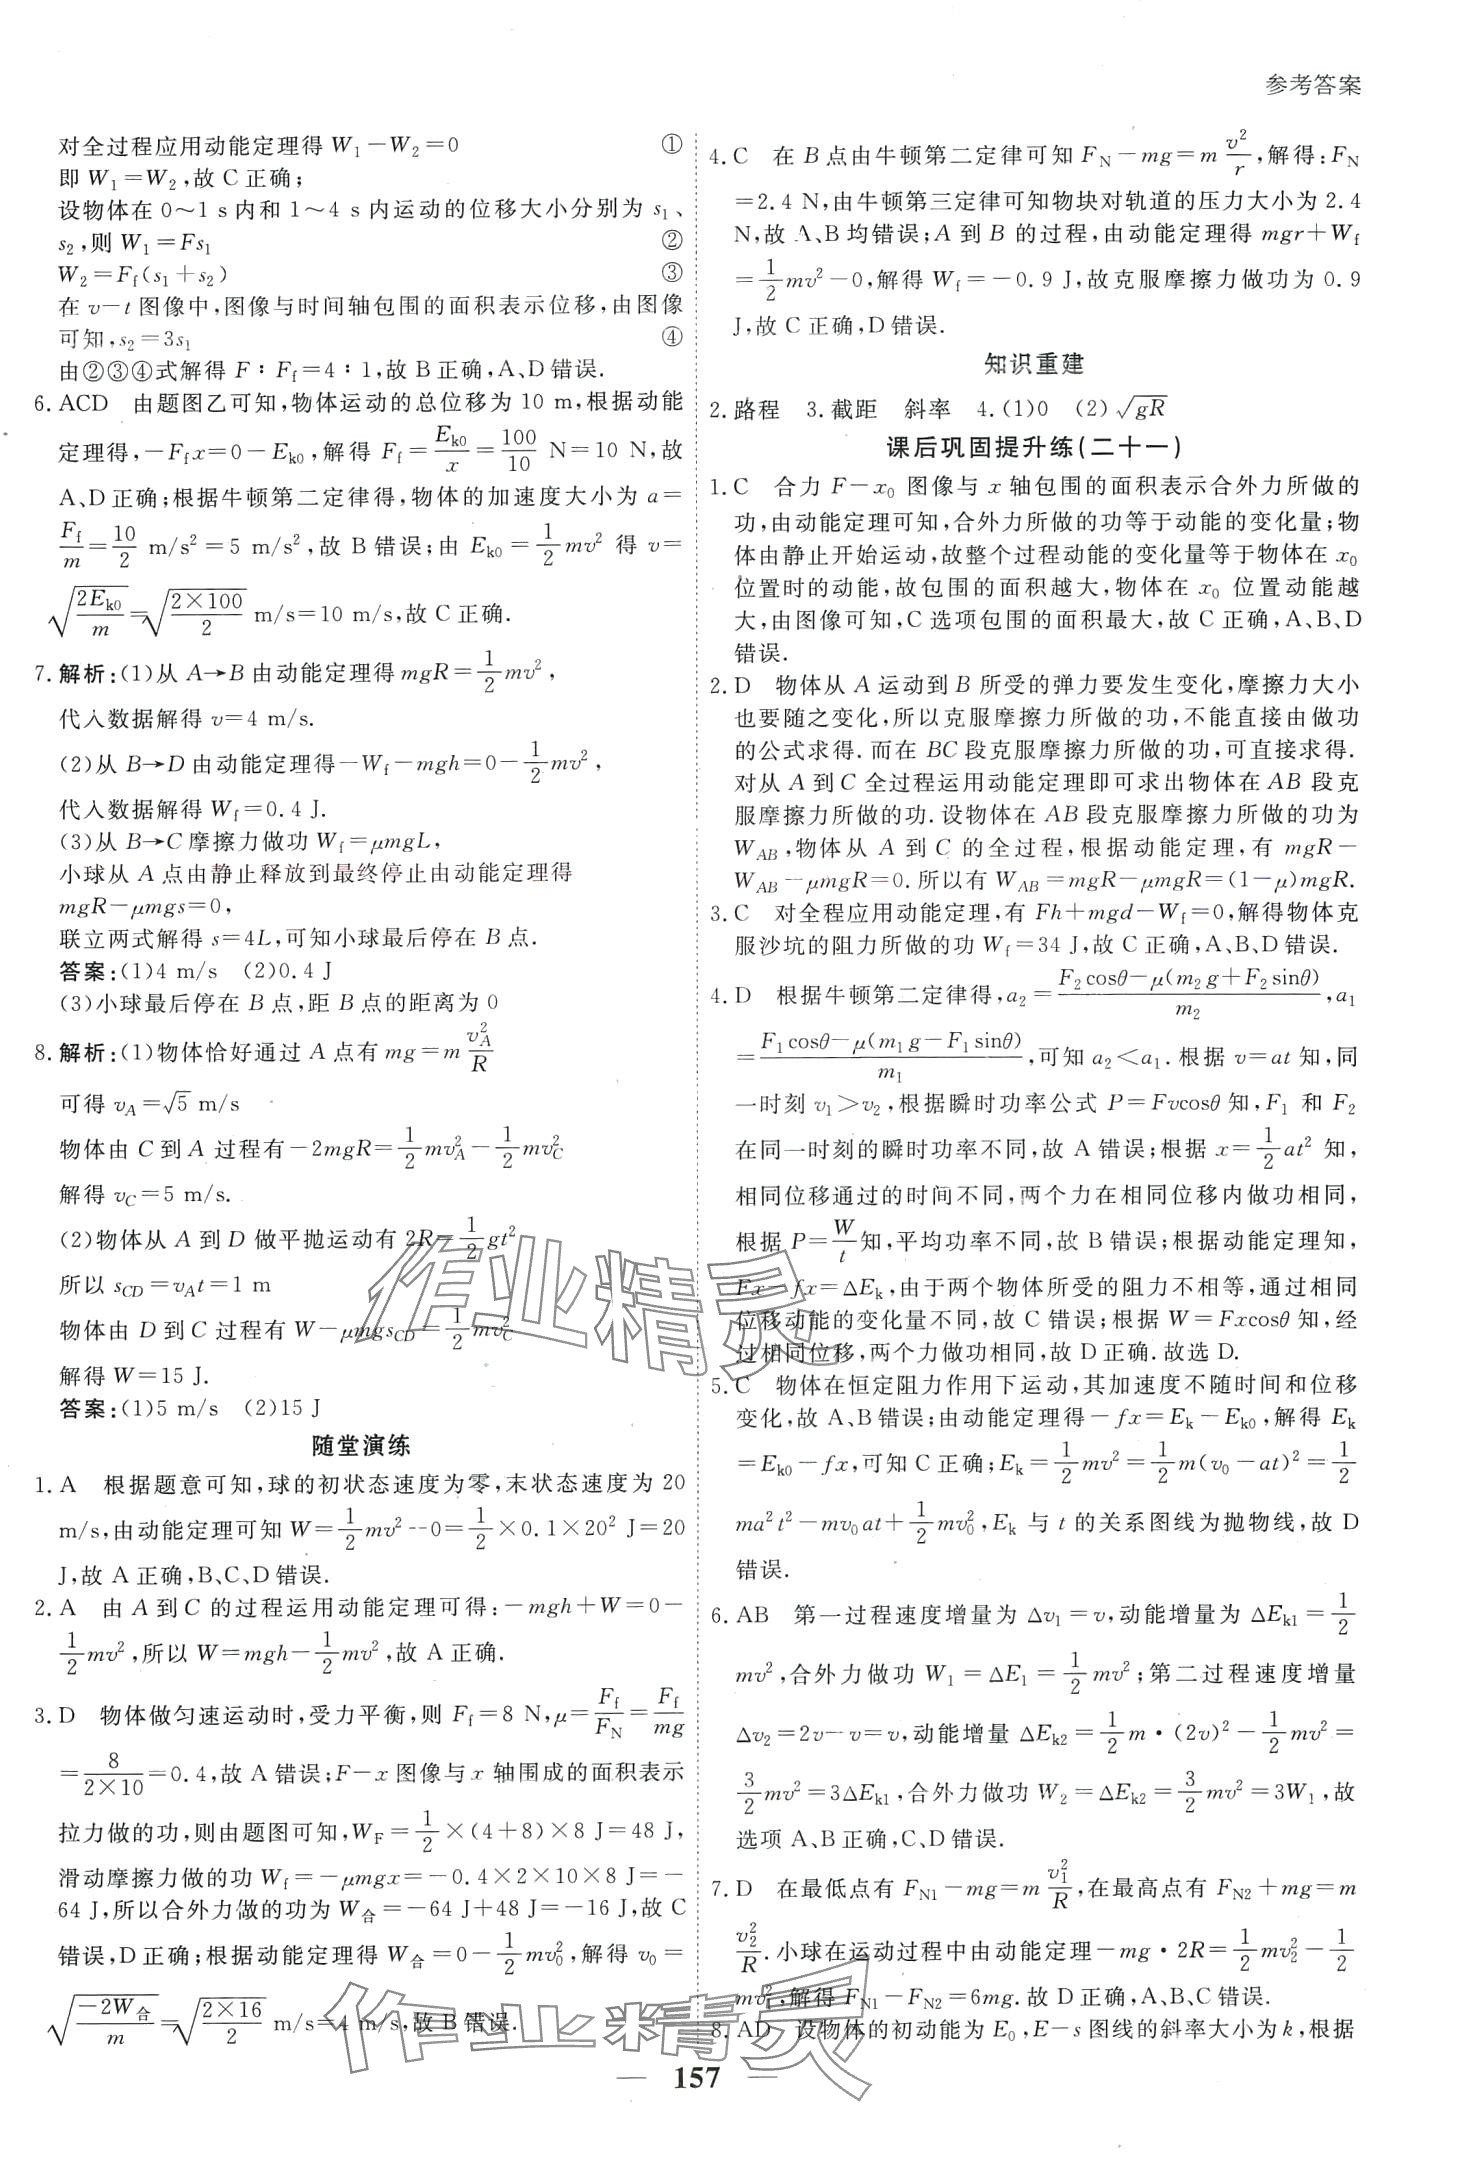 参考答案
对全过程应用动能定理得 W₁－W₂＝0 ①
即 W₁＝W₂,故 C 正确;
设物体在 0～1 s 内和 1～4 s 内运动的位移大小分别为 s₁、
s₂,则 W₁＝Fs₁ ②
W₂＝F_f(s₁＋s₂) ③
在 v－t 图像中,图像与时间轴包围的面积表示位移,由图像
可知,s₂＝3s₁ ④
由②③④式解得 F∶F_f＝4∶1,故 B 正确,A、D 错误.
6. ACD 由题图乙可知,物体运动的总位移为 10 m,根据动能
定理得,－F_f x＝0－E_k0,解得 F_f＝E_k0/x＝100/10 N＝10 N,故
A、D 正确;根据牛顿第二定律得,物体的加速度大小为 a＝
F_f/m＝10/2 m/s²＝5 m/s²,故 B 错误;由 E_k0＝1/2 mv² 得 v＝
√(2E_k0/m)＝√(2×100/2) m/s＝10 m/s,故 C 正确.
7. 解析:(1)从 A→B 由动能定理得 mgR＝1/2 mv²,
代入数据解得 v＝4 m/s.
(2)从 B→D 由动能定理得－W_f－mgh＝0－1/2 mv²,
代入数据解得 W_f＝0.4 J.
(3)从 B→C 摩擦力做功 W_f＝μmgL,
小球从 A 点由静止释放到最终停止由动能定理得
mgR－μmgs＝0,
联立两式解得 s＝4L,可知小球最后停在 B 点.
答案:(1)4 m/s (2)0.4 J
(3)小球最后停在 B 点,距 B 点的距离为 0
8. 解析:(1)物体恰好通过 A 点有 mg＝m v_A²/R
可得 v_A＝√5 m/s
物体由 C 到 A 过程有－2mgR＝1/2 mv_A²－1/2 mv_C²
解得 v_C＝5 m/s.
(2)物体从 A 到 D 做平抛运动有 2R＝1/2 gt²
所以 s_CD＝v_A t＝1 m
物体由 D 到 C 过程有 W－μmgs_CD＝1/2 mv_C²
解得 W＝15 J.
答案:(1)5 m/s (2)15 J
随堂演练
1. A 根据题意可知,球的初状态速度为零,末状态速度为 20
m/s,由动能定理可知 W＝1/2 mv²－0＝1/2×0.1×20² J＝20
J,故 A 正确,B、C、D 错误.
2. A 由 A 到 C 的过程运用动能定理可得:－mgh＋W＝0－
1/2 mv²,所以 W＝mgh－1/2 mv²,故 A 正确.
3. D 物体做匀速运动时,受力平衡,则 F_f＝8 N,μ＝F_f/F_N＝F_f/mg
＝8/(2×10)＝0.4,故 A 错误;F－x 图像与 x 轴围成的面积表示
拉力做的功,则由题图可知,W_F＝1/2×(4＋8)×8 J＝48 J,
滑动摩擦力做的功 W_f＝－μmgx＝－0.4×2×10×8 J＝－
64 J,所以合外力做的功为 W合＝－64 J＋48 J＝－16 J,故 C
错误,D 正确;根据动能定理得 W合＝0－1/2 mv₀²,解得 v₀＝
√(－2W合/m)＝√(2×16/2) m/s＝4 m/s,故 B 错误.
4. C 在 B 点由牛顿第二定律可知 F_N－mg＝m v²/r,解得:F_N
＝2.4 N,由牛顿第三定律可知物块对轨道的压力大小为 2.4
N,故 A、B 均错误;A 到 B 的过程,由动能定理得 mgr＋W_f
＝1/2 mv²－0,解得 W_f＝－0.9 J,故克服摩擦力做功为 0.9
J,故 C 正确,D 错误.
知识重建
2. 路程 3. 截距 斜率 4. (1)0 (2)√(gR)
课后巩固提升练(二十一)
1. C 合力 F－x₀ 图像与 x 轴包围的面积表示合外力所做的
功,由动能定理可知,合外力所做的功等于动能的变化量;物
体由静止开始运动,故整个过程动能的变化量等于物体在 x₀
位置时的动能,故包围的面积越大,物体在 x₀ 位置动能越
大,由图像可知,C 选项包围的面积最大,故 C 正确,A、B、D
错误.
2. D 物体从 A 运动到 B 所受的弹力要发生变化,摩擦力大小
也要随之变化,所以克服摩擦力所做的功,不能直接由做功
的公式求得.而在 BC 段克服摩擦力所做的功,可直接求得.
对从 A 到 C 全过程运用动能定理即可求出物体在 AB 段克
服摩擦力所做的功.设物体在 AB 段克服摩擦力所做的功为
W_AB,物体从 A 到 C 的全过程,根据动能定理,有 mgR－
W_AB－μmgR＝0.所以有 W_AB＝mgR－μmgR＝(1－μ)mgR.
3. C 对全程应用动能定理,有 Fh＋mgd－W_f＝0,解得物体克
服沙坑的阻力所做的功 W_f＝34 J,故 C 正确,A、B、D 错误.
4. D 根据牛顿第二定律得,a₂＝(F₂cosθ－μ(m₂g＋F₂sinθ))/m₂,a₁
＝(F₁cosθ－μ(m₁g－F₁sinθ))/m₁,可知 a₂＜a₁.根据 v＝at 知,同
一时刻 v₁＞v₂,根据瞬时功率公式 P＝Fvcosθ 知,F₁ 和 F₂
在同一时刻的瞬时功率不同,故 A 错误;根据 x＝1/2 at² 知,
相同位移通过的时间不同,两个力在相同位移内做功相同,
根据 P＝W/t 知,平均功率不同,故 B 错误;根据动能定理知,
Fx－fx＝ΔE_k,由于两个物体所受的阻力不相等,通过相同
位移动能的变化量不同,故 C 错误;根据 W＝Fxcosθ 知,经
过相同位移,两个力做功相同,故 D 正确.故选 D.
5. C 物体在恒定阻力作用下运动,其加速度不随时间和位移
变化,故 A、B 错误;由动能定理得－fx＝E_k－E_k0,解得 E_k
＝E_k0－fx,可知 C 正确;E_k＝1/2 mv²＝1/2 m(v₀－at)²＝1/2
ma²t²－mv₀at＋1/2 mv₀²,E_k 与 t 的关系图线为抛物线,故 D
错误.
6. AB 第一过程速度增量为 Δv₁＝v,动能增量为 ΔE_k1＝1/2
mv²,合外力做功 W₁＝ΔE₁＝1/2 mv²;第二过程速度增量
Δv₂＝2v－v＝v,动能增量 ΔE_k2＝1/2 m·(2v)²－1/2 mv²＝
3/2 mv²＝3ΔE_k1,合外力做功 W₂＝ΔE_k2＝3/2 mv²＝3W₁,故
选项 A、B 正确,C、D 错误.
7. D 在最低点有 F_N1－mg＝m v₁²/R,在最高点有 F_N2＋mg＝m
v₂²/R.小球在运动过程中由动能定理－mg·2R＝1/2 mv₂²－1/2
mv₁²,解得 F_N1－F_N2＝6mg.故 D 正确,A、B、C 错误.
8. AD 设物体的初动能为 E₀,E－s 图线的斜率大小为 k,根据
— 157 —
作业精灵
作业精灵